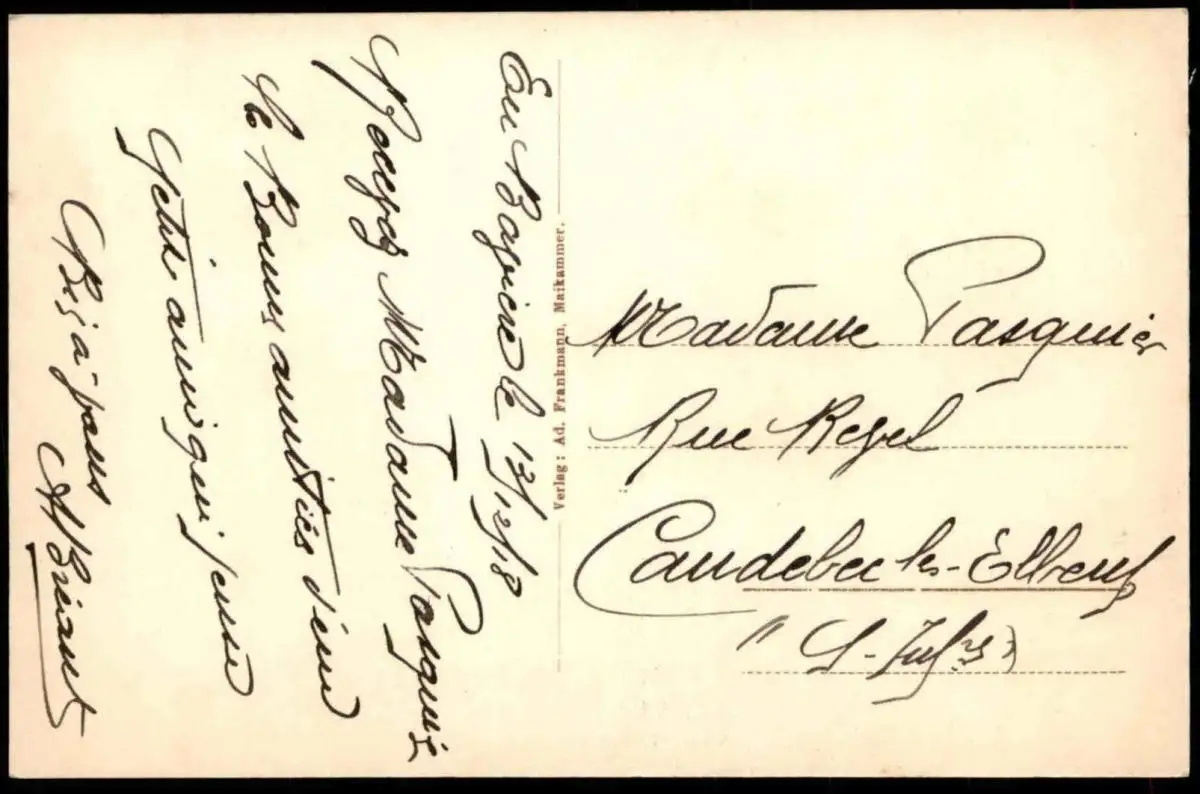 En Bavière le 13/12/18
Recevez Madame Pasquier
les Bonnes amitiés d'un
Petit ami qui pense
Bien à vous
A Briant
Verlag: Ad. Frankmann, Maikammer.
Madame Pasquier
Rue Revel
Caudebec les-Elbeuf
S-Infre